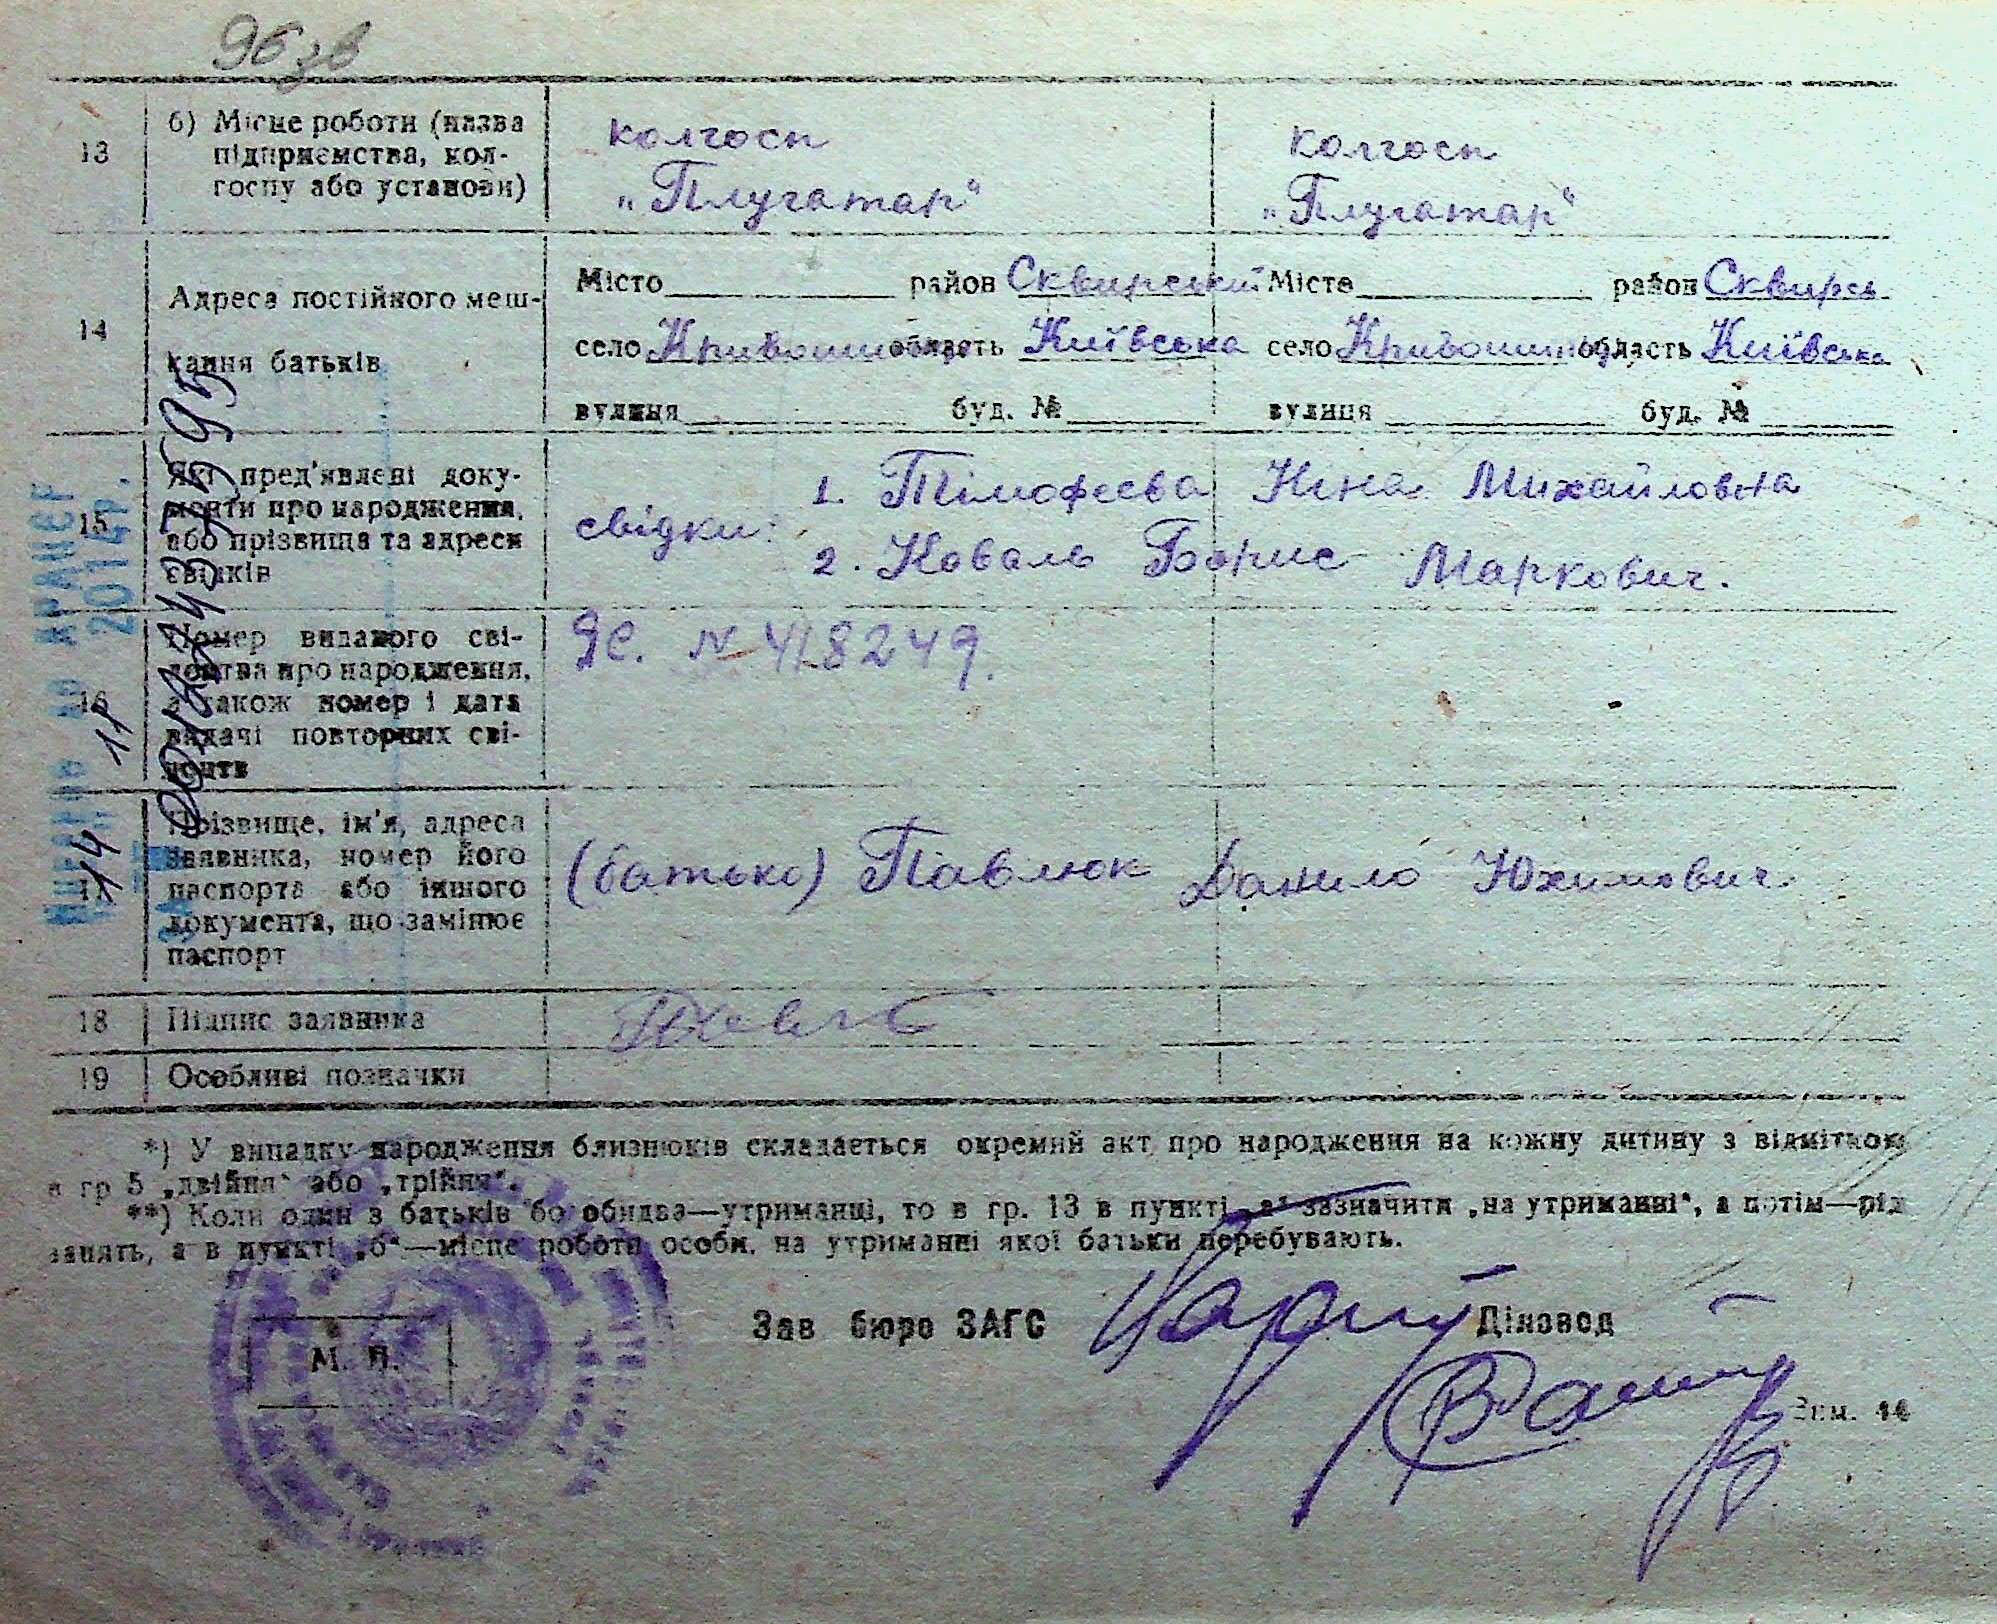 96 зв
13
б) Місце роботи (назва
підприємства, кол-
госпу або установи)
колгосп
„Плугатар“
колгосп
„Плугатар“
14
Адреса постійного меш-
кання батьків
Місто район Сквирський
село область Київська
вулиця буд. №
Місто район Сквирсь
село область Київська
вулиця буд. №
15
Які пред'явлені доку-
менти про народження,
або прізвища та адреси
свідків
свідки:
1. Тімофеєва Ніна Михайловна
2. Коваль Борис Маркович.
16
Номер виданого сві-
доцтва про народження,
а також номер і дата
видачі повторних сві-
доцтв
ЯС. № 418249.
17
Прізвище, ім'я, адреса
заявника, номер його
паспорта або іншого
документа, що замінює
паспорт
(батько) Павлюк Данило Юхимович
18
Підпис заявника
19
Особливі позначки
*) У випадку народження близнюків складається окремий акт про народження на кожну дитину з відміткою
в гр 5 „двійня“ або „трійня“.
**) Коли один з батьків бо обидва—утриманці, то в гр. 13 в пункті „а“ зазначити „на утриманні“, а потім—рід
занять, а в пункті „б“—місце роботи особи, на утриманні якої батьки перебувають.
М. П.
Зав бюро ЗАГС
Діловод
2014р.
14 11